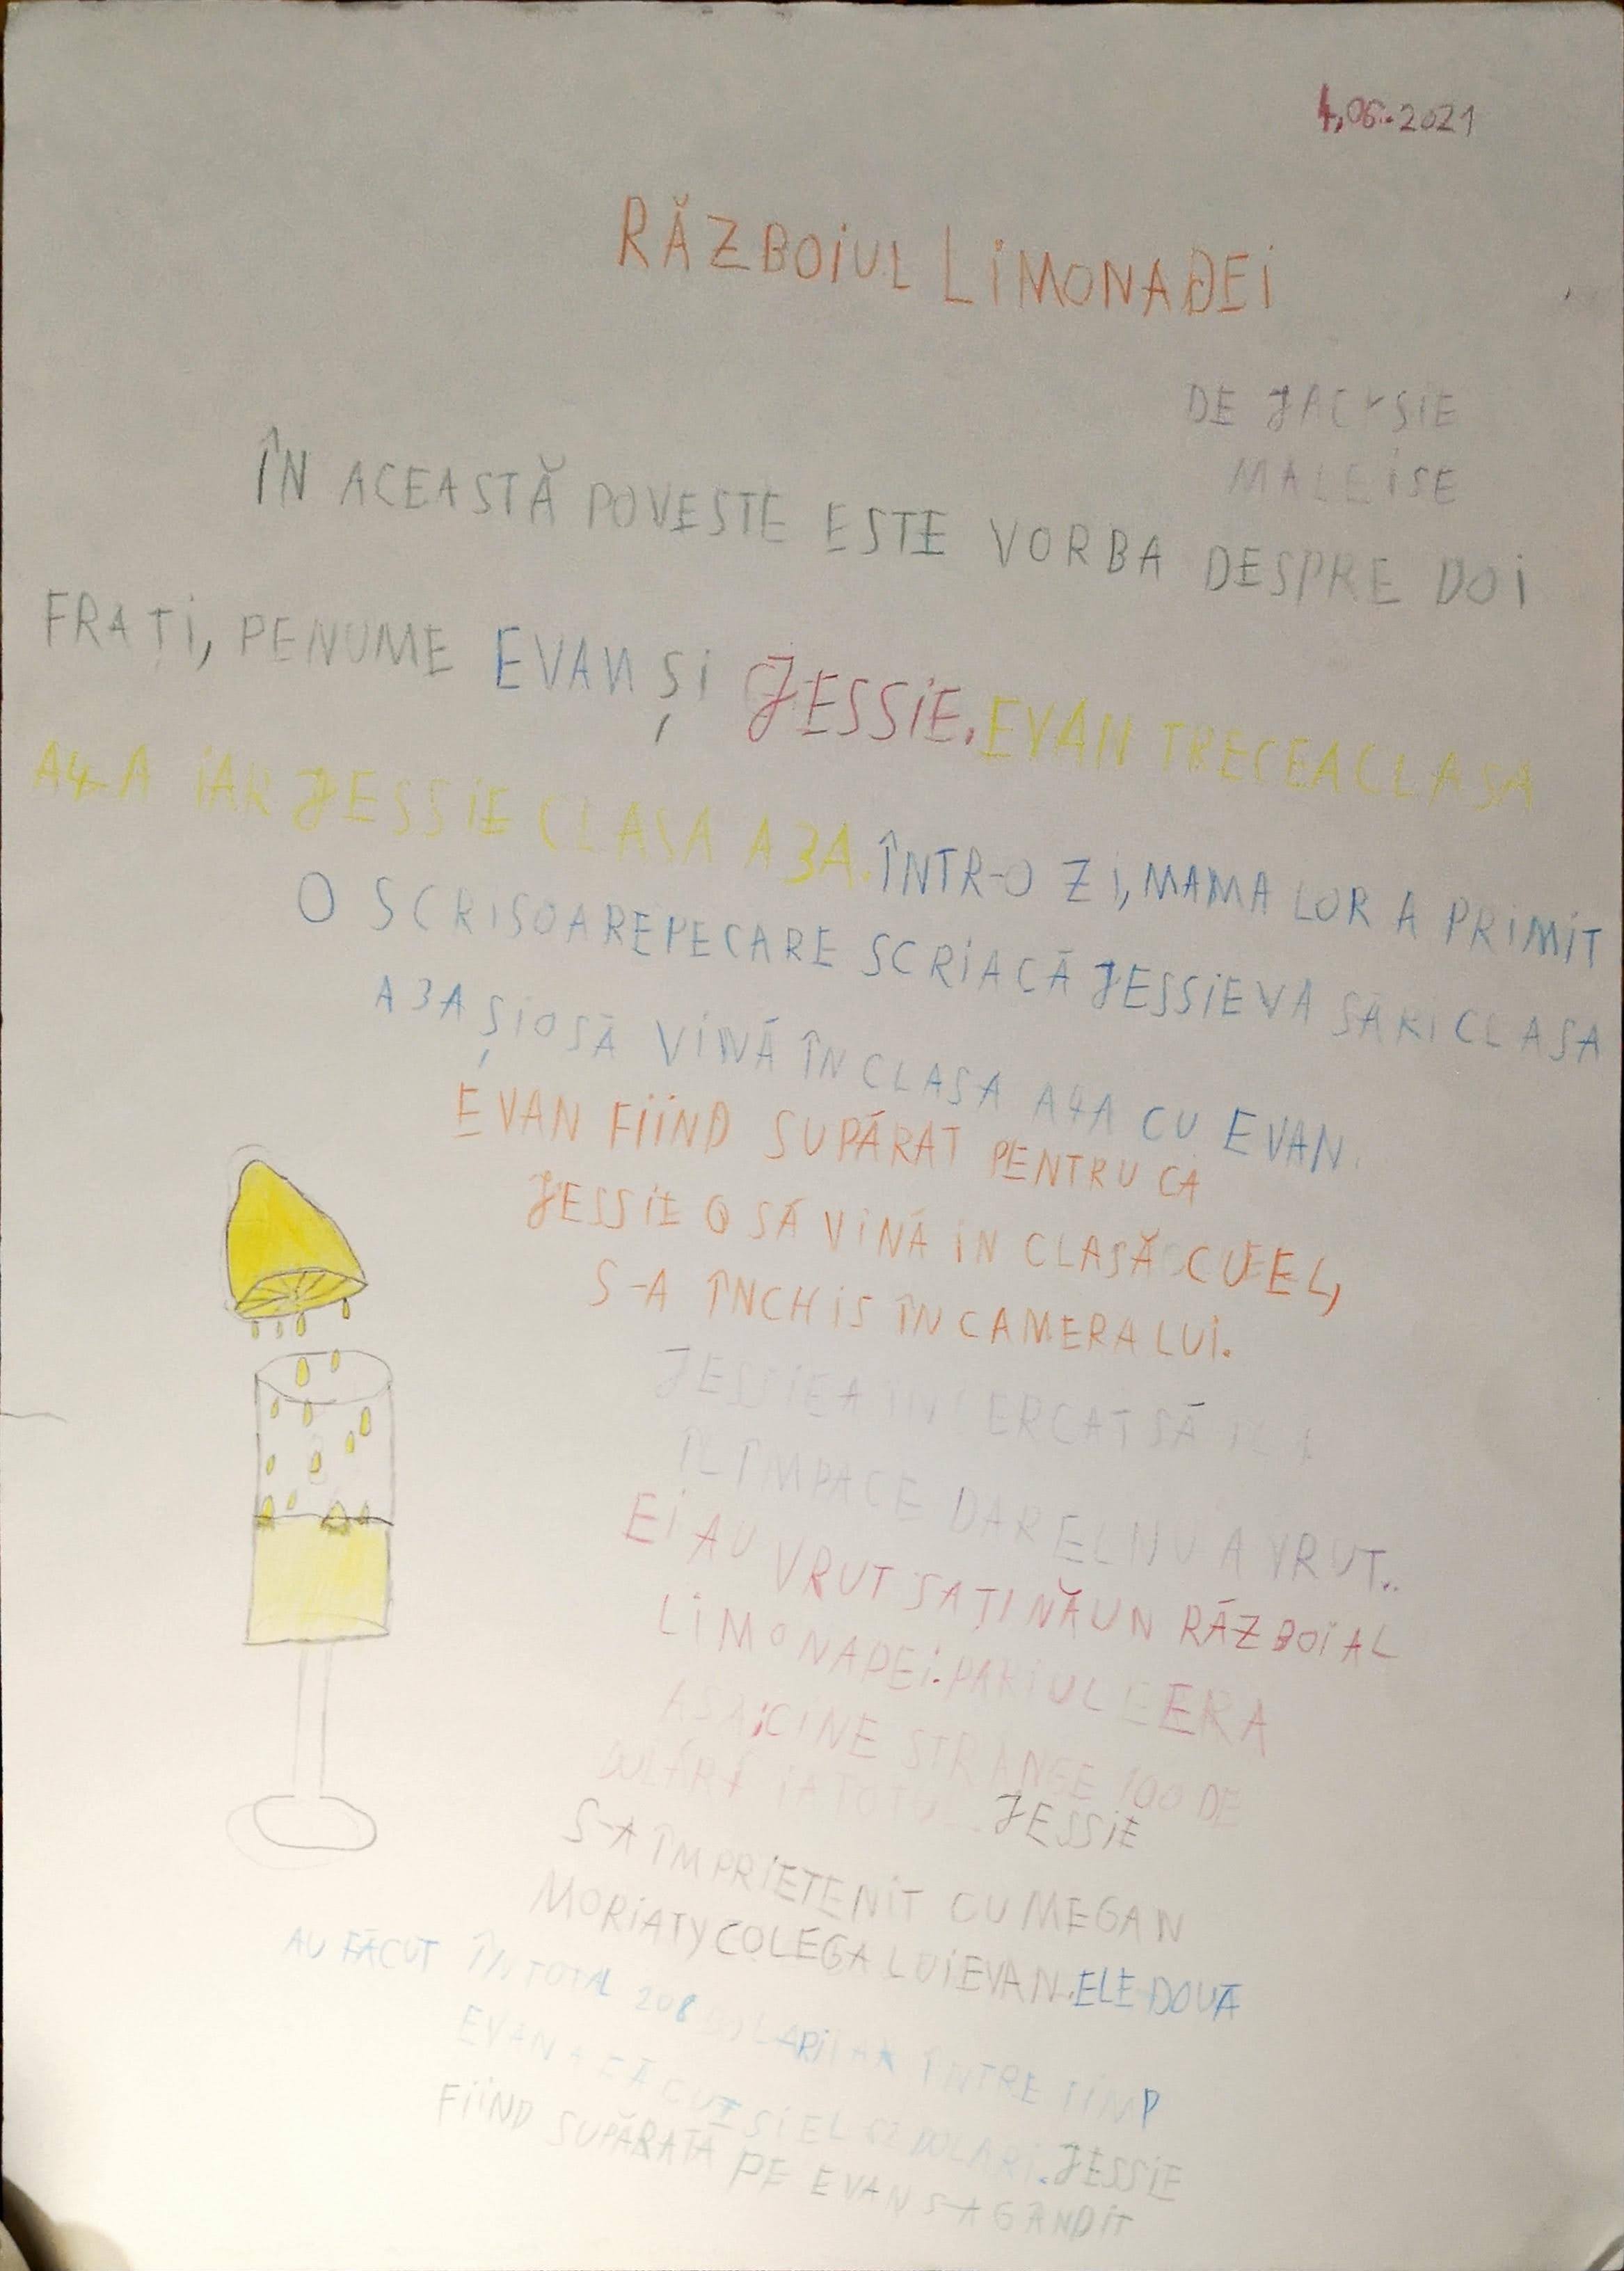 4,06.2021
RĂZBOIUL LIMONADEI
DE JACYSIE
MALEISE
ÎN ACEASTĂ POVESTE ESTE VORBA DESPRE DOI
FRAȚI, PENUME EVAN ȘI JESSIE. EVAN TRECEA CLASA
A4-A IAR JESSIE CLASA A 3A. ÎNTR-O ZI, MAMA LOR A PRIMIT
O SCRISOARE PE CARE SCRIA CĂ JESSIE VA SĂRI CLASA
A 3A ȘI O SĂ VINĂ ÎN CLASA A4A CU EVAN.
EVAN FIIND SUPĂRAT PENTRU CĂ
JESSIE O SĂ VINĂ IN CLASĂ CU EL,
S-A ÎNCHIS ÎN CAMERA LUI.
JESSIE A INCERCAT SĂ
ÎL ÎMPACE DAR EL NU A VRUT..
EI AU VRUT SA ȚINĂ UN RĂZBOI AL
LIMONADEI. PARIUL ERA
AȘA: CINE STRÂNGE 100 DE
DOLARI IA TOTUL. JESSIE
S-A ÎMPRIETENIT CU MEGAN
MORIATY COLEGA LUI EVAN. ELE DOUĂ
AU FĂCUT ÎN TOTAL 208 DOLARI IAR ÎNTRE TIMP
EVAN A FĂCUT SI EL 52 DOLARI. JESSIE
FIIND SUPĂRATĂ PE EVAN S-A GÂNDIT